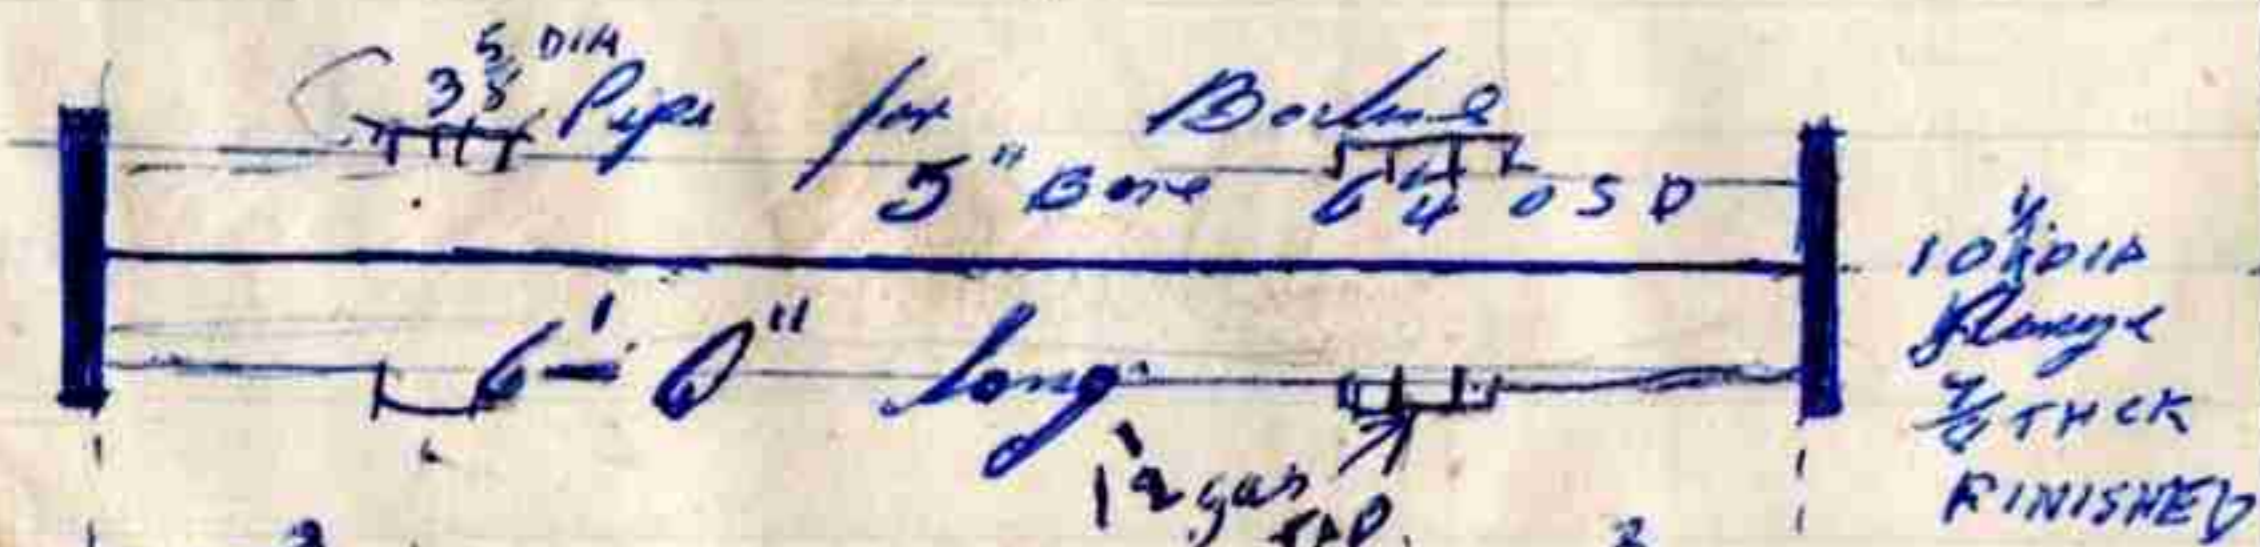 3 5/8 DIA
Pipe for
5" Bore 6 1/4 O S D
6'-0" long
1 1/2 gas
TAP
10 1/2 DIA
Flange
7/8 THCK
FINISHED